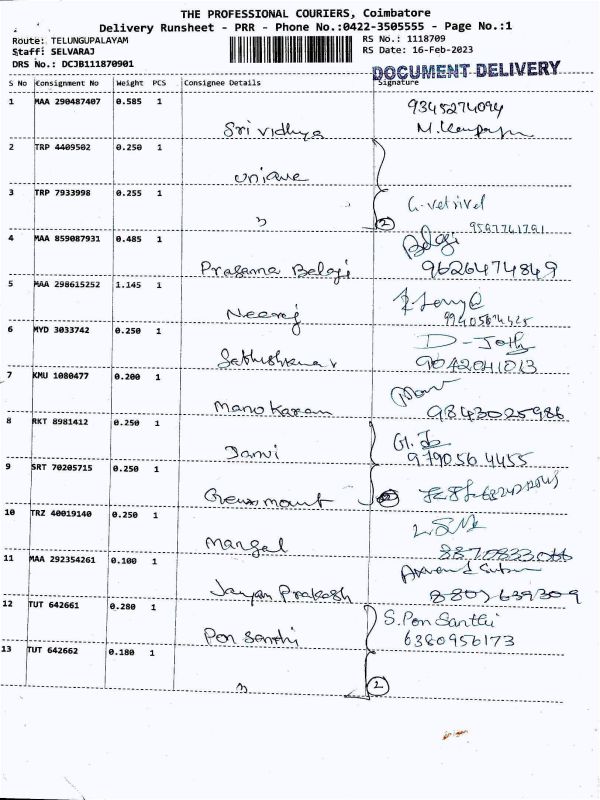 THE PROFESSIONAL COURIERS, Coimbatore
Delivery Runsheet - PRR - Phone No.:0422-3505555 - Page No.:1
Route: TELUNGUPALAYAM RS No.: 1118709
Staff: SELVARAJ RS Date: 16-Feb-2023
DRS No.: DCJB111870901 DOCUMENT DELIVERY
S No Consignment No Weight PCS Consignee Details Signature
1 MAA 290487407 0.585 1 9345274094
Sri vidhya
2 TRP 4409502 0.250 1
unique
3 TRP 7933998 0.255 1 G. vetrivel
" 2 9587761791
4 MAA 859087931 0.485 1 Balaji
Prasanna Balaji 9626474849
5 MAA 298615252 1.145 1
Neeraj
6 MYD 3033742 0.250 1
9042041013
7 KMU 1080477 0.200 1
Manokaran 9843025986
8 RKT 8981412 0.250 1
9790564455
9 SRT 70205715 0.250 1
2
10 TRZ 40019140 0.250 1
Mangal
11 MAA 292354261 0.100 1
Prakash
12 TUT 642661 0.280 1 S. Pon Santhi
Pon Santhi 6380956173
13 TUT 642662 0.180 1
" 2